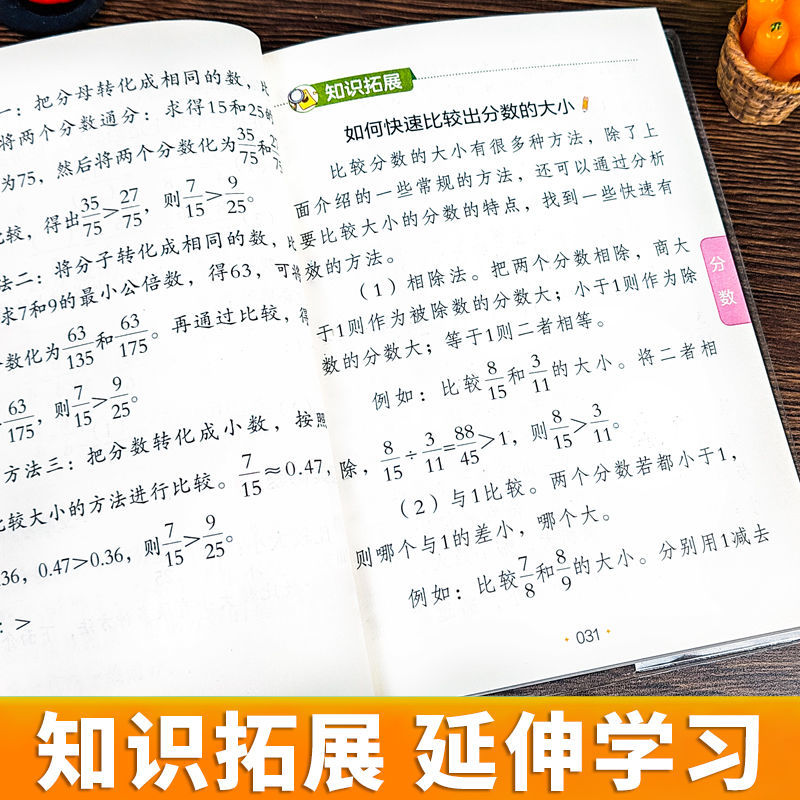 一：把分母转化成相同的数，
将两个分数通分：求得15和25
为75，然后将两个分数化为35/75和
比较，得出35/75>27/75，则7/15>9/25。
法二：将分子转化成相同的数，
求7和9的最小公倍数，得63，可将
数化为63/135和63/175。再通过比较，得
63/175，则7/15>9/25。
方法三：把分数转化成小数，按照
比较大小的方法进行比较。7/15≈0.47，
.36，0.47>0.36，则7/15>9/25。
：>
知识拓展
如何快速比较出分数的大小
比较分数的大小有很多种方法，除了上
面介绍的一些常规的方法，还可以通过分析
要比较大小的分数的特点，找到一些快速有
效的方法。
（1）相除法。把两个分数相除，商大
于1则作为被除数的分数大；小于1则作为除
数的分数大；等于1则二者相等。
例如：比较8/15和3/11的大小。将二者相
除，8/15÷3/11=88/45>1，则8/15>3/11。
（2）与1比较。两个分数若都小于1，
则哪个与1的差小，哪个大。
例如：比较7/8和8/9的大小。分别用1减去
031
分数
知识拓展 延伸学习